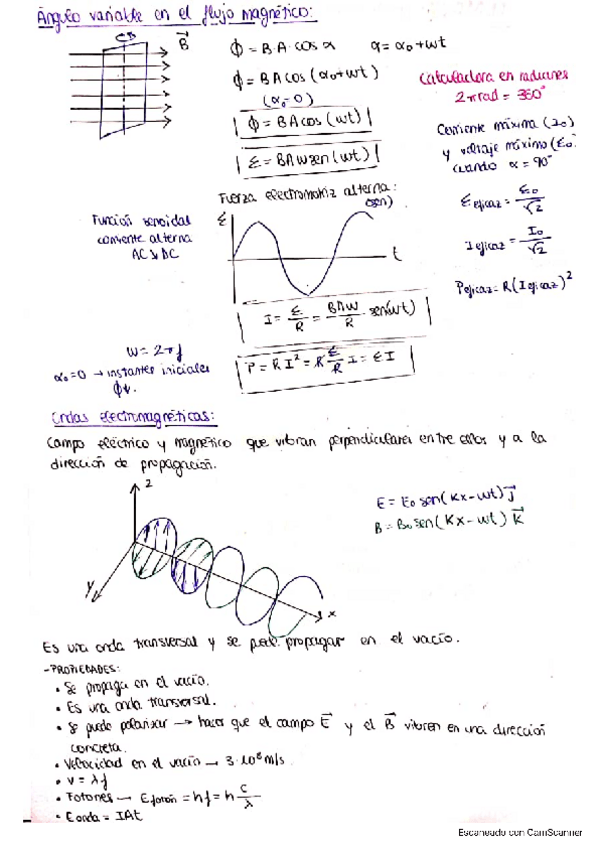 Ángulo variable en el flujo magnético:
B
ϕ = B·A·cos α   α = α₀ + wt
ϕ = B A cos (α₀ + wt)
(α₀ = 0)
ϕ = B A cos (wt)
ε = BAw sen (wt)
Calculadora en radianes
2π rad = 360°
Corriente máxima (I₀)
y voltaje máximo (ε₀)
cuando α = 90°
ε eficaz = ε₀/√2
I eficaz = I₀/√2
P eficaz = R (I eficaz)²
Fuerza electromotriz alterna:
(sen)
ε
t
Función senoidal
corriente alterna
I = ε/R = BAw/R · sen(wt)
P = R I² = R ε/R I = ε I
w = 2πf
α₀ = 0 → instantes iniciales
Ondas electromagnéticas:
Campo eléctrico y magnético que vibran perpendiculares entre ellos y a la
dirección de propagación.
z
y
x
E = E₀ sen (Kx - wt) J
B = B₀ sen (Kx - wt) K
Es una onda transversal y se puede propagar en el vacío.
- PROPIEDADES:
• Se propaga en el vacío.
• Es una onda transversal.
• Se puede polarizar → hacer que el campo E y el B vibren en una dirección
concreta.
• Velocidad en el vacío → 3·10⁸ m/s.
• v = λf
• Fotones → E fotón = hf = h c/λ
• E onda = IAt
Escaneado con CamScanner